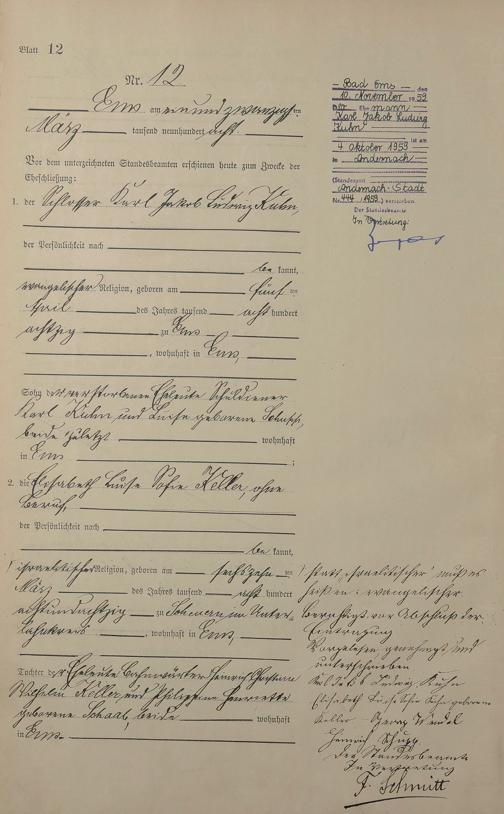 Blatt 12
Nr. 12
Ems am einundzwanzigsten
März tausend neunhundert acht
Vor dem unterzeichneten Standesbeamten erschienen heute zum Zwecke der
Eheschließung:
1. der Schlosser Karl Jakob Ludwig Kuhn,
der Persönlichkeit nach
be kannt,
evangelischer Religion, geboren am fünften
April des Jahres tausend acht hundert
achtzig zu Ems
, wohnhaft in Ems,
Sohn der verstorbenen Eheleute Schuldiener
Karl Kuhn und Luise geborene
beide zuletzt wohnhaft
in Ems ;
2. die Elisabeth Luise Sofie Keller, ohne
Beruf,
der Persönlichkeit nach
be kannt,
israelitischer Religion, geboren am sechszehnten
März des Jahres tausend acht hundert
achtundachtzig zu im Unter-
lahnkreis , wohnhaft in Ems,
Tochter der Eheleute Bahnwärter Heinrich Christian
Wilhelm Keller und Philippine Henriette
geborene Schaat, beide wohnhaft
in Ems.
Bad Ems, den
10. November 1959
Der Ehemann
Karl Jakob Ludwig
Kuhn
ist am
4. Oktober 1959
in Andernach
(Standesamt
Andernach-Stadt
Nr. 444 / 1959) verstorben.
Der Standesbeamte
In Vertretung
1) statt "israelitischer" muß es
heißen: evangelischer
Berichtigt vor Abschluß der
Eintragung
Vorgelesen, genehmigt und
unterschrieben
Karl Jakob Ludwig Kuhn
Elisabeth Luise Sofie Kuhn geborene
Keller Georg Wendel
Heinrich Schupp
Der Standesbeamte
In Vertretung
F. Schmitt